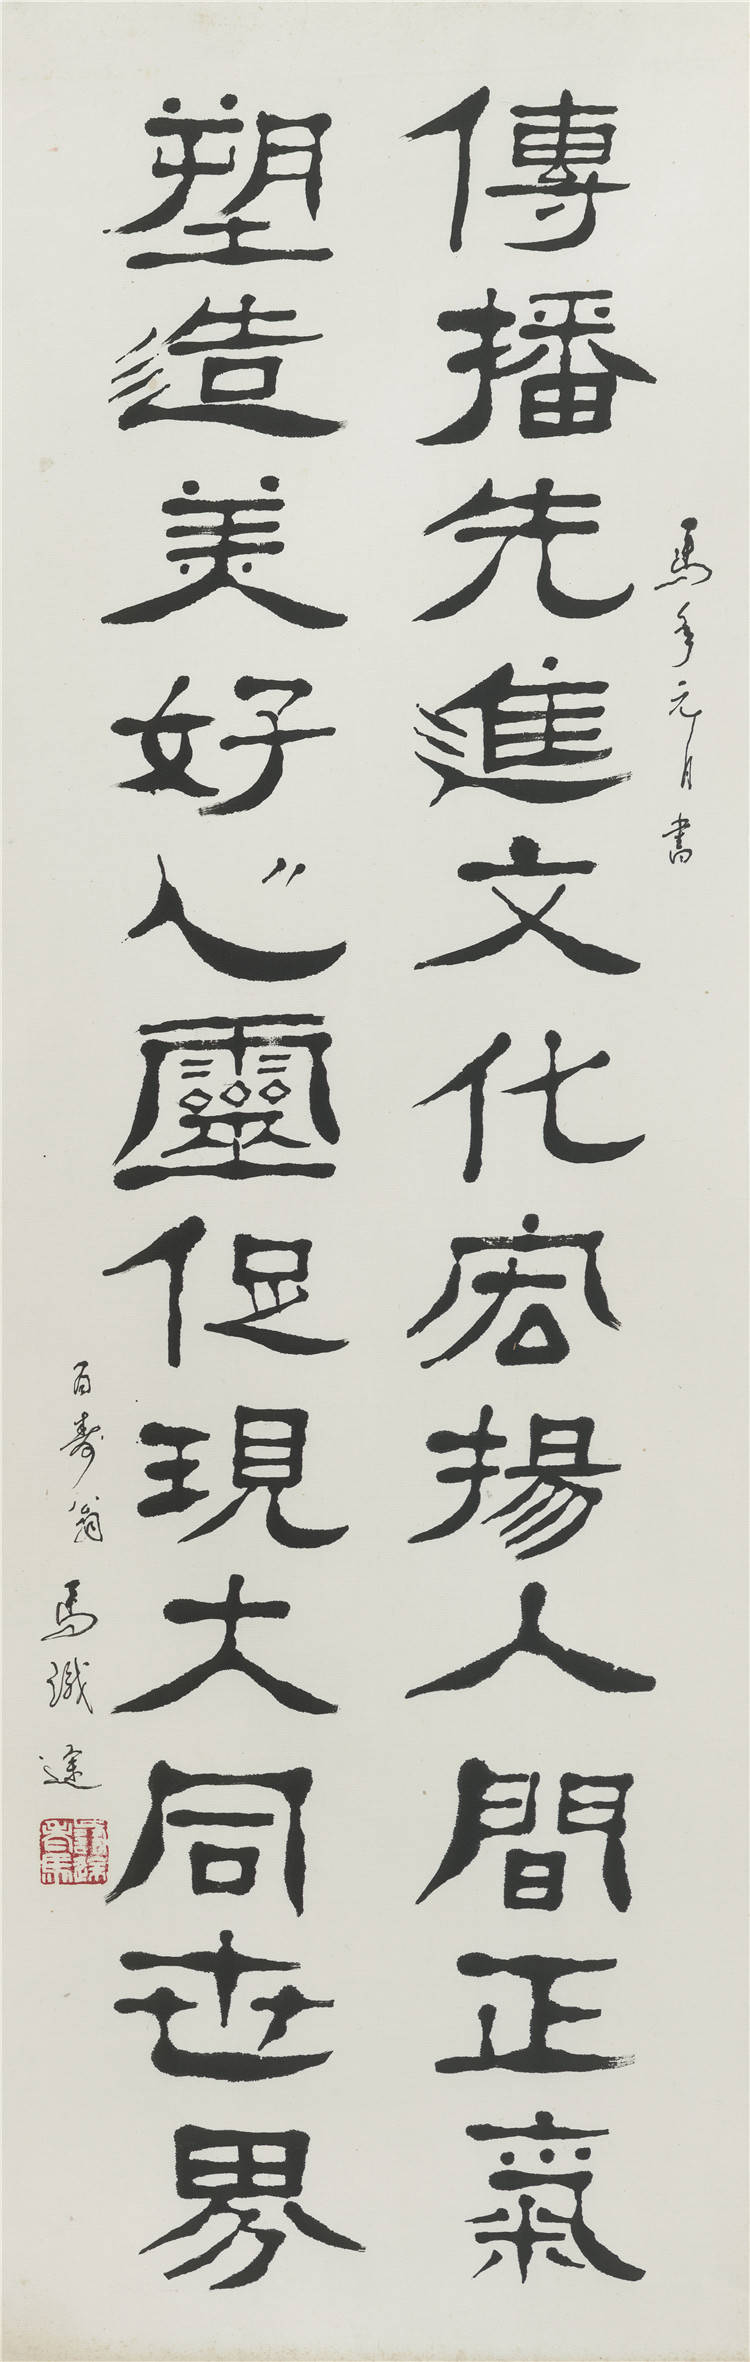 馬年元月書
傳播先進文化宏揚人間正氣
塑造美好心靈促現大同世界
百壽翁
馬識途